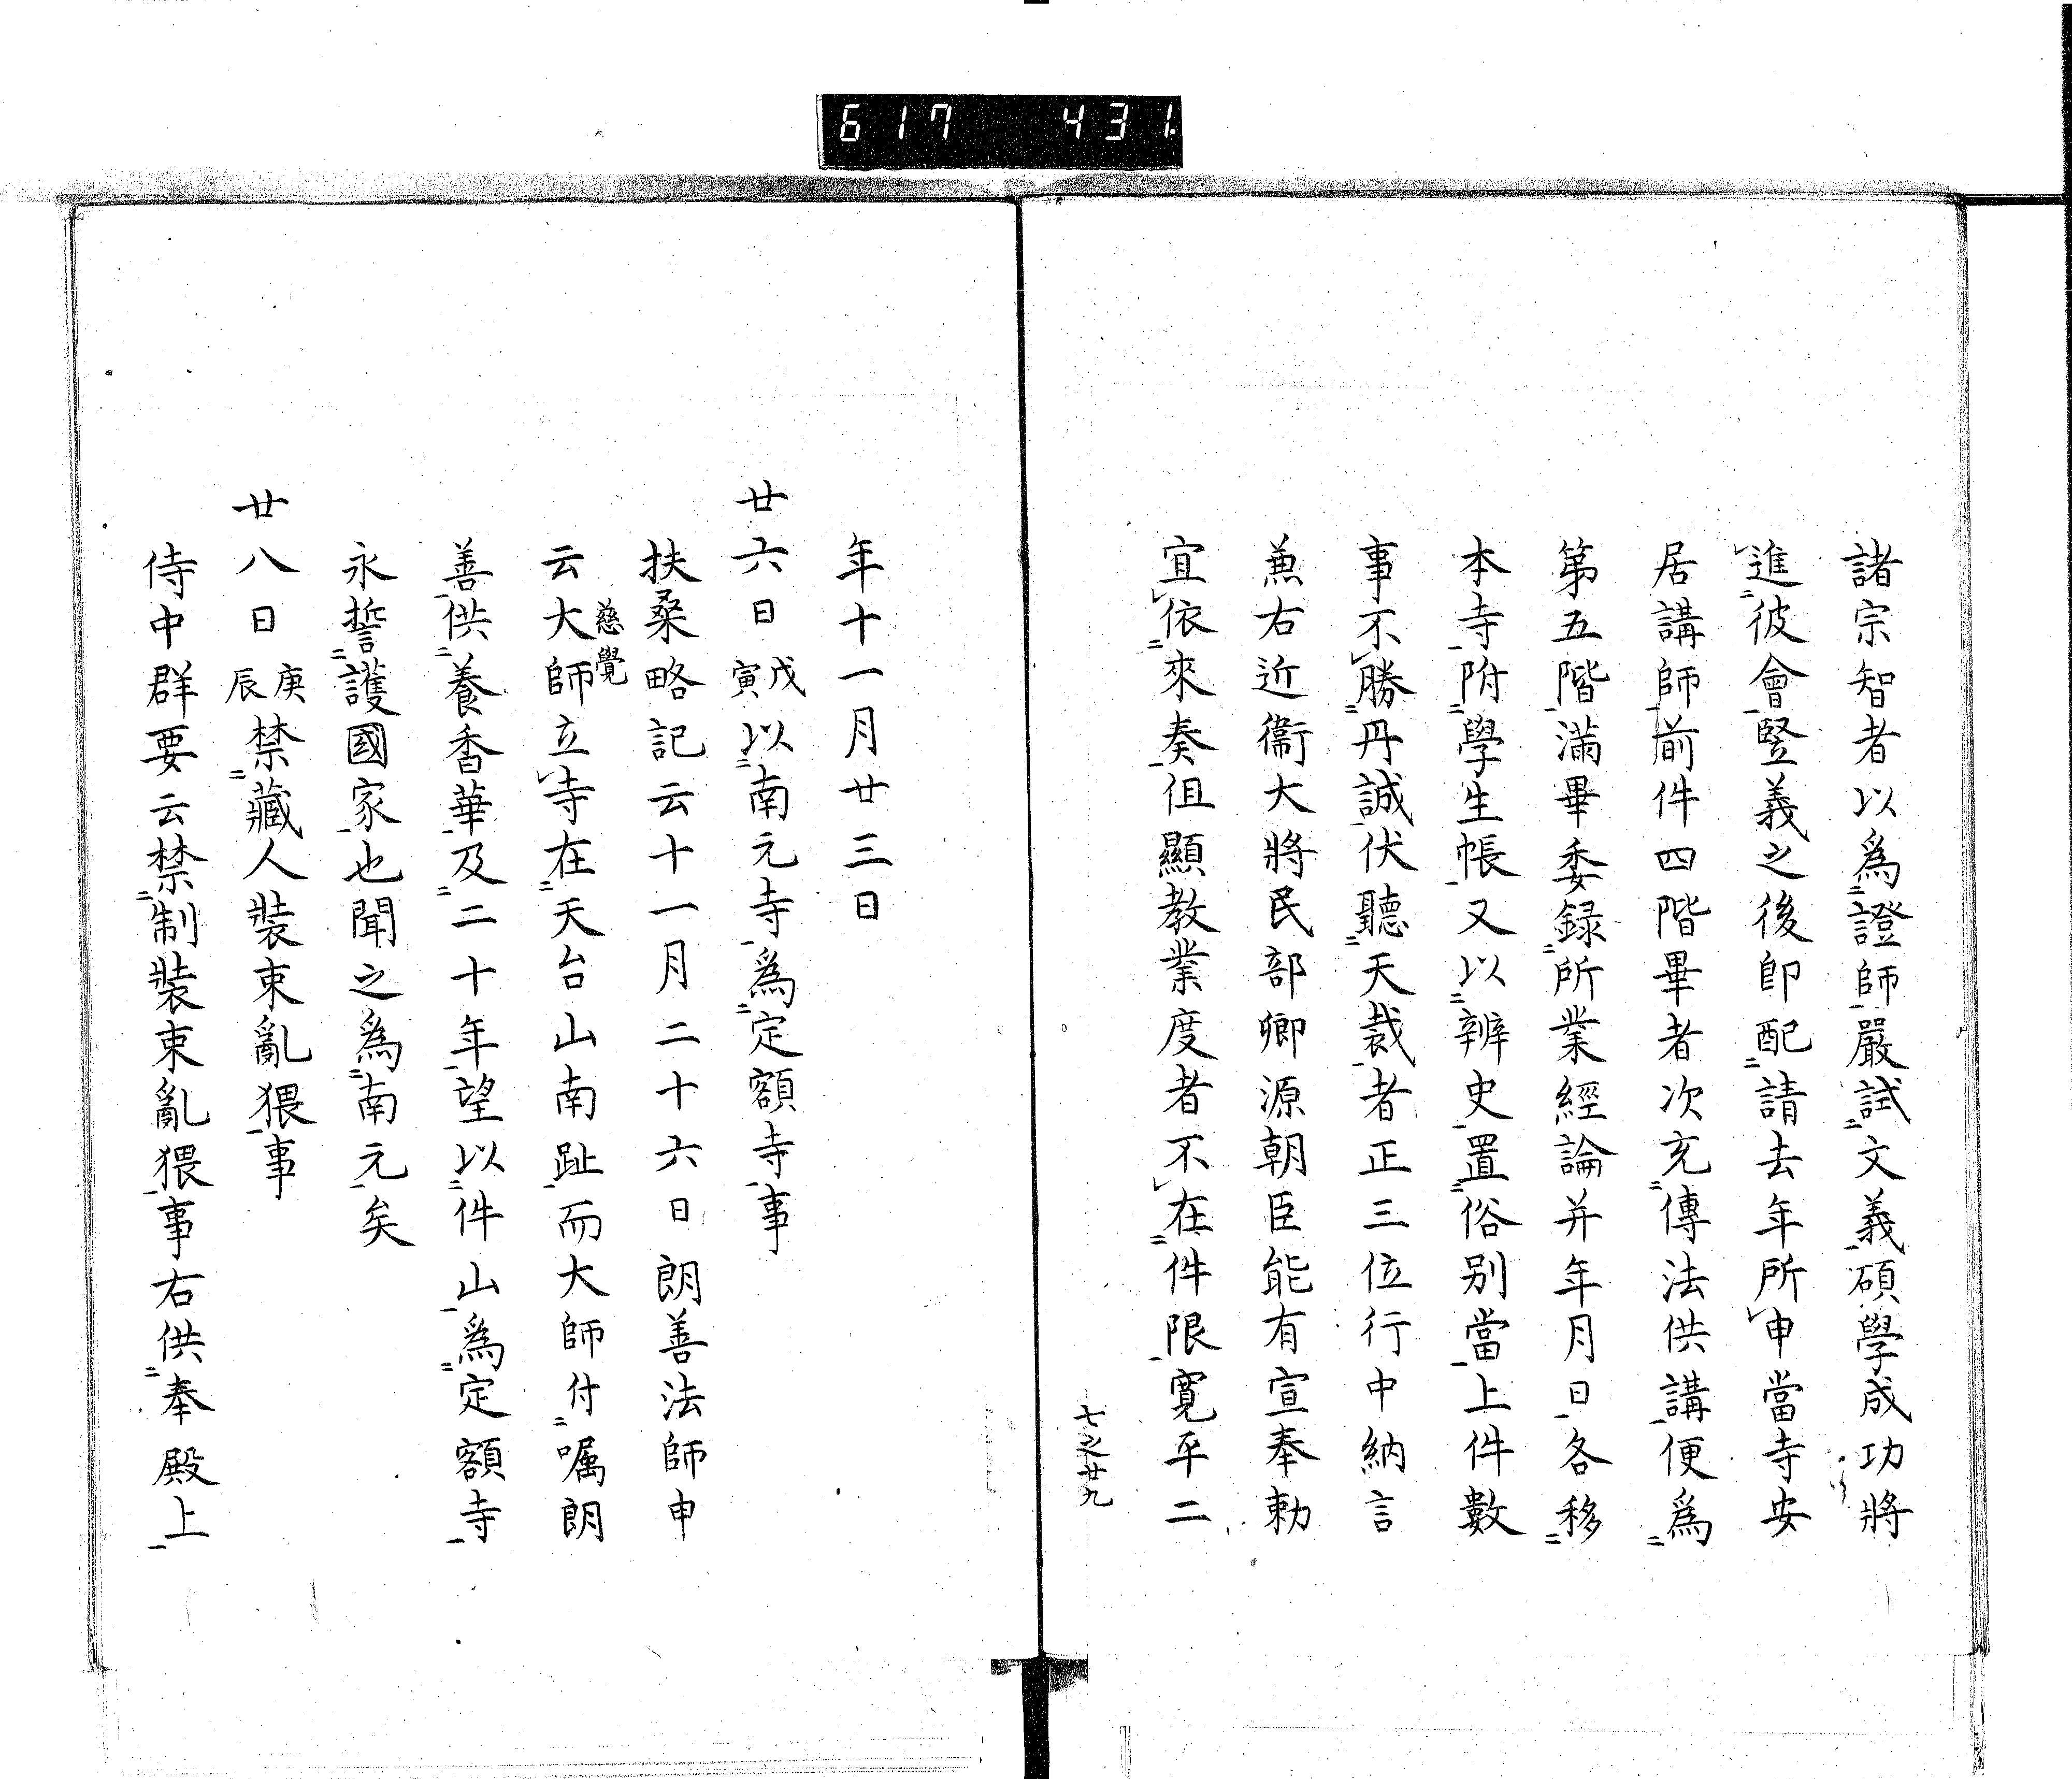 617 431
諸宗智者以為證師嚴試文義碩學成功將
進彼會竪義之後即配請去年所申當寺安
居講師前件四階畢者次充傳法供講便為
第五階滿畢委録所業經論并年月日各移
本寺附學生帳又以辨史置俗別當上件數
事不勝丹誠伏聽天裁者正三位行中納言
兼右近衞大將民部卿源朝臣能有宣奉勅
宜依來奏但顯教業度者不在件限寛平二
七之廿九
年十一月廿三日
廿六日戊寅以南元寺為定額寺事
扶桑略記云十一月二十六日朗善法師申
云大師慈覺立寺在天台山南趾而大師付嘱朗
善供養香華及二十年望以件山為定額寺
永誓護國家也聞之為南元矣
廿八日庚辰禁藏人裝束亂猥事
侍中群要云禁制裝束亂猥事右供奉殿上